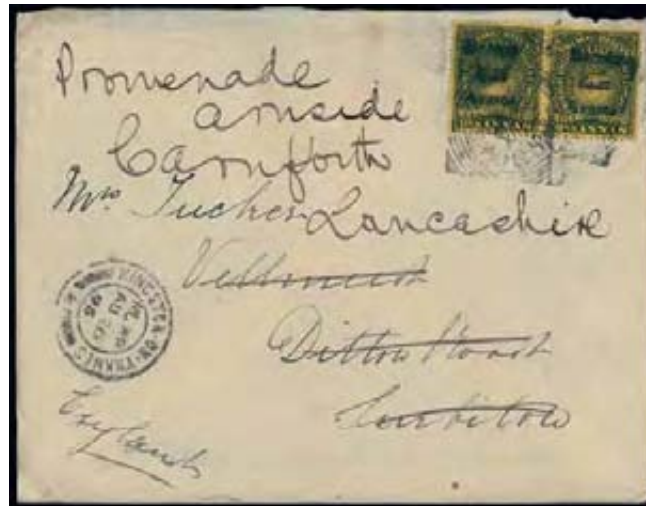 Promenade
Arnside
Carnforth
Mrs Tucker Lancashire
Ditton Road
Surbiton
England
KINGSTON-ON-THAMES
AU 26
95